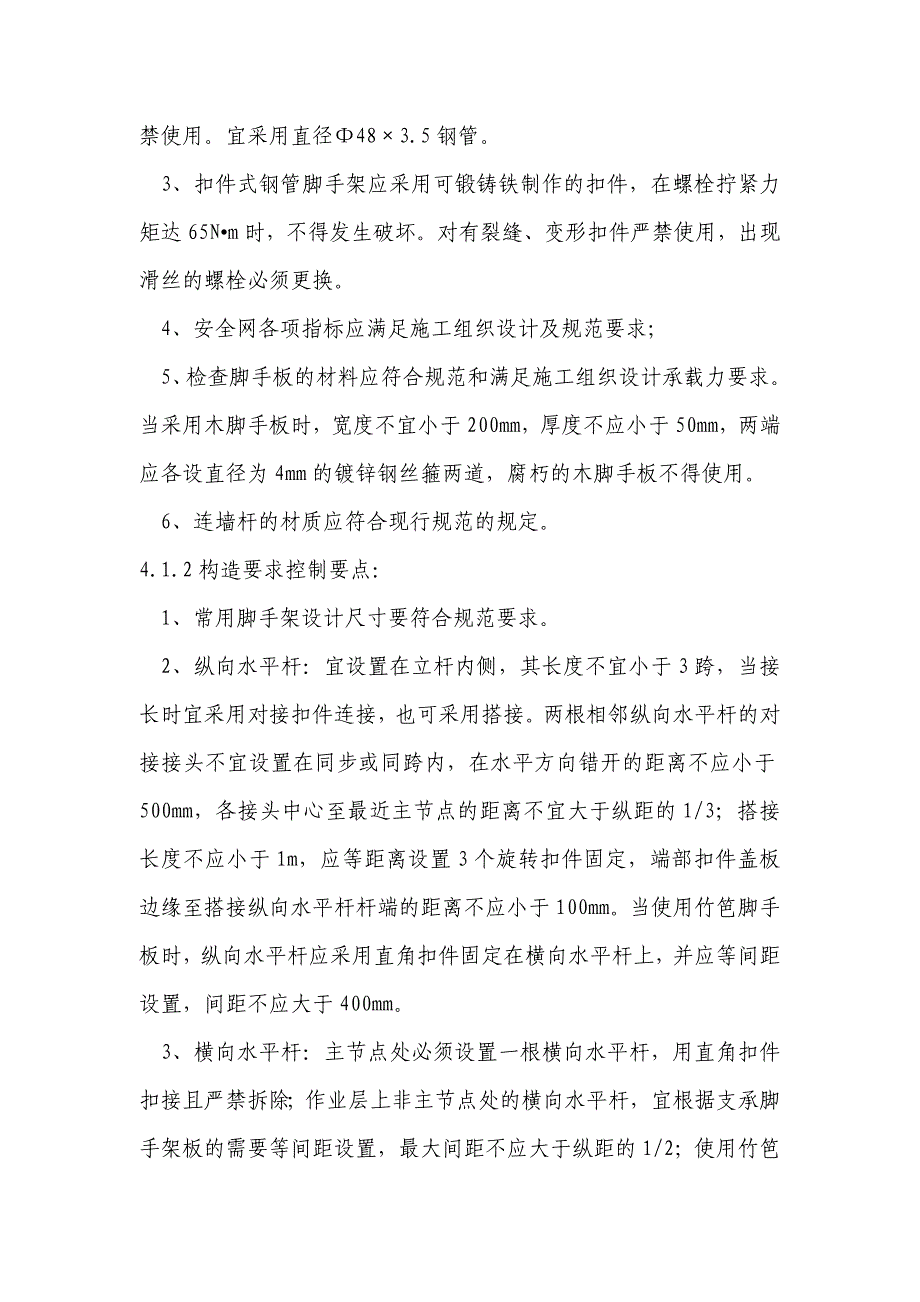 禁使用。宜采用直径Φ48×3.5钢管。
3、扣件式钢管脚手架应采用可锻铸铁制作的扣件，在螺栓拧紧力
矩达65N•m时，不得发生破坏。对有裂缝、变形扣件严禁使用，出现
滑丝的螺栓必须更换。
4、安全网各项指标应满足施工组织设计及规范要求；
5、检查脚手板的材料应符合规范和满足施工组织设计承载力要求。
当采用木脚手板时，宽度不宜小于200mm，厚度不应小于50mm，两端
应各设直径为4mm的镀锌钢丝箍两道，腐朽的木脚手板不得使用。
6、连墙杆的材质应符合现行规范的规定。
4.1.2构造要求控制要点：
1、常用脚手架设计尺寸要符合规范要求。
2、纵向水平杆：宜设置在立杆内侧，其长度不宜小于3跨，当接
长时宜采用对接扣件连接，也可采用搭接。两根相邻纵向水平杆的对
接接头不宜设置在同步或同跨内，在水平方向错开的距离不应小于
500mm，各接头中心至最近主节点的距离不宜大于纵距的1/3；搭接
长度不应小于1m，应等距离设置3个旋转扣件固定，端部扣件盖板
边缘至搭接纵向水平杆杆端的距离不应小于100mm。当使用竹笆脚手
板时，纵向水平杆应采用直角扣件固定在横向水平杆上，并应等间距
设置，间距不应大于400mm。
3、横向水平杆：主节点处必须设置一根横向水平杆，用直角扣件
扣接且严禁拆除；作业层上非主节点处的横向水平杆，宜根据支承脚
手架板的需要等间距设置，最大间距不应大于纵距的1/2；使用竹笆